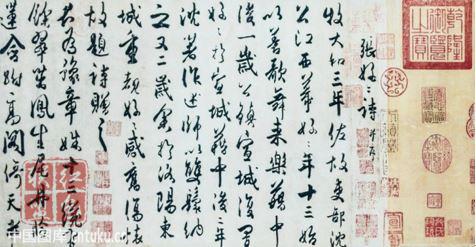 乾隆御覽之寶
張好好詩并序
牧大和三年佐故吏部沈
公江西幕好好年十三始
以善歌舞来樂籍中
後一歲公鎮宣城復置
好好於宣城籍中後二年
沈著作述師以雙鬟納
之又二歲余於洛陽東
城重覩好好感舊傷懷
故題詩贈之
君為豫章姝十三纔
餘翠茁鳳生尾丹
蓮含跗高閣倚天半
中国图库 cntuku.cn